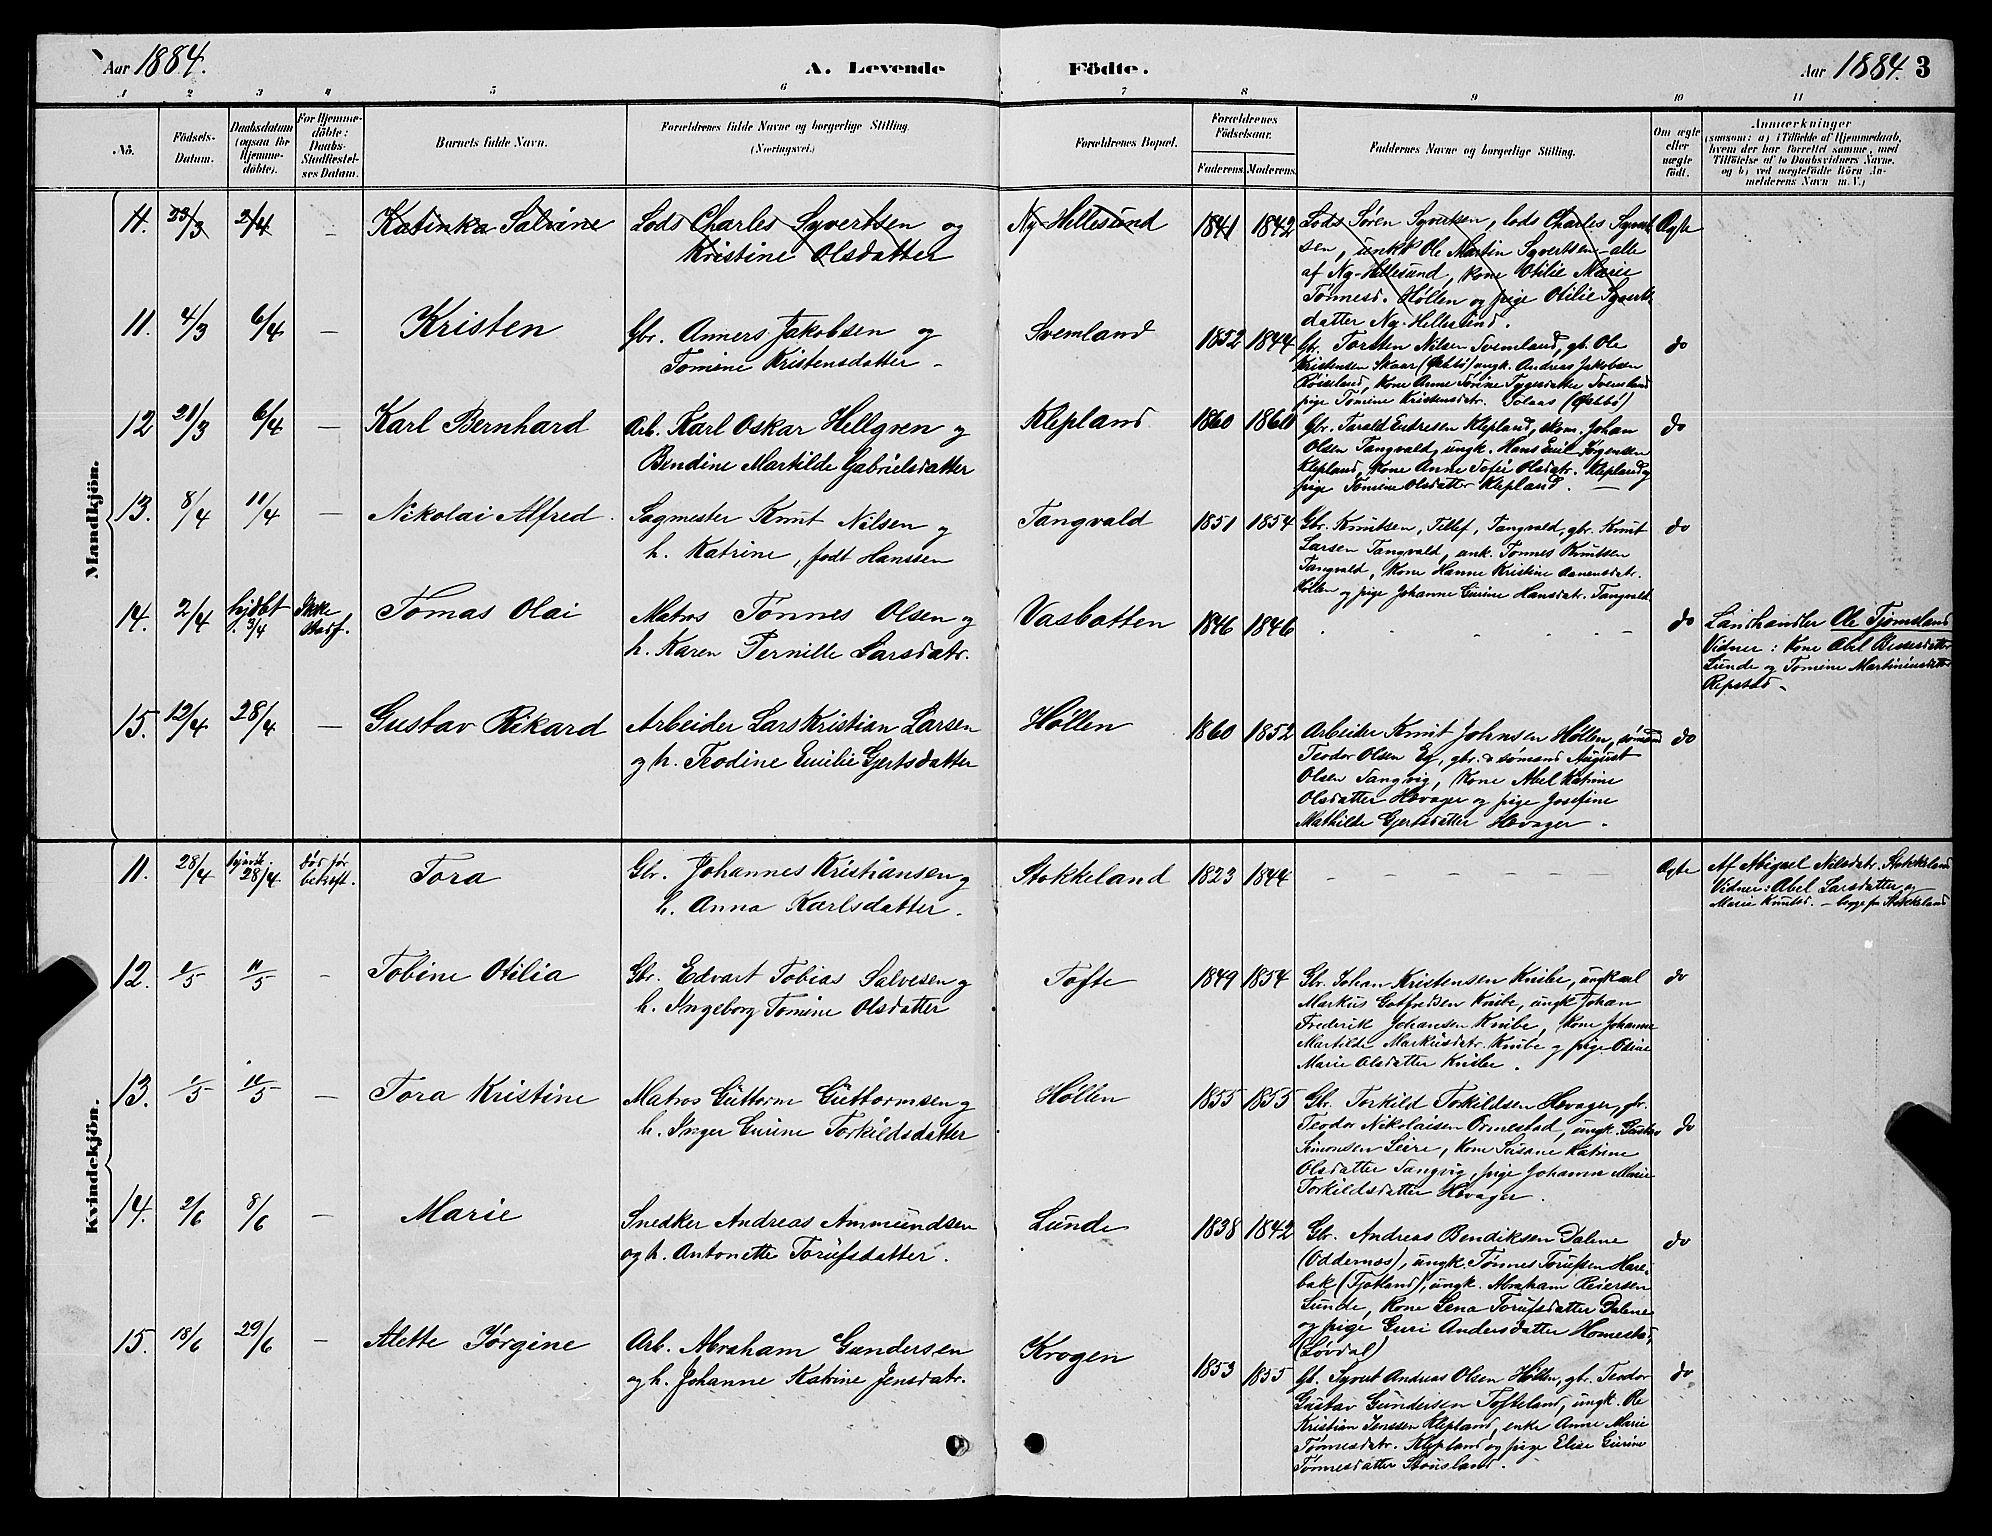 Aar 1884.
A. Levende Födte.
Aar 1884. 3
1 2 3 4 5 6 7 8 9 10 11
No.
Födsels-Datum.
Daabsdatum (ogsaa for Hjemmedöbte).
For Hjemmedöbte: Daabs-Stadfæstelses Datum.
Barnets fulde Navn.
Forældrenes fulde Navne og borgerlige Stilling. (Næringsvei.)
Forældrenes Bopæl.
Forældrenes Födselsaar.
Faderens. Moderens.
Faddernes Navne og borgerlige Stilling.
Om ægte eller uægte födt.
Anmærkninger
(saasom: a) i Tilfælde af Hjemmedaab,
hvem der har forrettet samme, med
Tilföielse af to Daabsvidners Navne.
og b) ved uægtefödte Börn An-
melderens Navn m. V.)
Mandkjön.
11. 23/3 2/4 – Katinka Salvine
Lods Charles Syvertsen og
Kristine Olsdatter
Ny-Hellesund 1841 1842
Lods Søren Syvertsen, lods Charles Syvert-
sen, unkk Ole Martin Syvertsen alle
af Ny-Hellesund, kone Otilie Marie
Tønnesd. Høllen og pige Otilie Syverts
datter Ny-Hellesund.
Ægte
11. 4/3 6/4 – Kristen
Gbr. Anners Jakobsen og
Tomine Kristensdatter –
Svemland 1852 1844
Gb. Torsten Nilsen Svemland, gb. Ole
Kristensen Skaar (Øvbø) ungk. Andreas Jakobsen
Røiseland, kone Anne Torine Tygesdatter Svemland
pige Tomine Kristensdtr. Solaas (Øvbø)
do
12 21/3 6/4 – Karl Bernhard
Arb. Karl Oskar Hellgren og
Bendine Martilde Gabrielsdatter
Klepland 1860 1860
Gbr. Tarald Endresen Klepland, skom. Johan
Olsen Tangvald, ungk. Hans Emil Jørgensen
Klepland, kone Anne Sofie Olsdatr. Klepland og
pige Tomine Olsdatter Klepland. –
do
13. 8/4 11/4 – Nikolai Alfred.
Sagmester Knut Nilsen og
h. Katrine, født Hanssen
Tangvald 1851 1854
Gbr. Knutsen, Tellef, Tangvald, gbr. Knut
Larsen Tangvald, unk. Tønnes Knutsen
Tangvald, kone Hanne Kristine Aanensdatr.
Høllen og pige Johanne Gurine Hansdatr. Tangvald
do
14. 2/4 hjdbt. 3/4 Ikke stadf. Tomas Olai
Matros Tønnes Olsen og
h. Karen Pernille Larsdatr.
Vasbotten 1846 1846
do
Landhandler Ole Tjømsland
Vidner: kone Abel Bessesdatter
Lunde og Tomine Martiniusdatter
Repstad –
15. 12/4 28/4 – Gustav Rikard
Arbeider Lars Kristian Larsen
og h. Teodine Emilie Gjertsdatter
Høllen 1860 1852
Arbeider Knut Johnsen Høllen, sømand
Teodor Olsen Eg, gbr. & sømand August
Olsen Tangvig, kone Abel Katrine
Olsdatter Hovager og pige Josefine
Mathilde Gjertsdatter Hovager.
do
Kvindekjön.
11. 28/4 hjemd. 28/4 Død før bekræft. Tora
Gbr. Johannes Kristiansen og
h. Anna Karlsdatter.
Stokkeland 1823 1844
– – – – – – –
Ægte
Af Abigael Nilsdatr. Stokkeland
Vidner: Abel Larsdatter og
Marie Knutsd. – begge fra Stokkeland
12. 1/5 11/5 – Tobine Otilia
Gbr. Edvart Tobias Salvesen og
h. Ingeborg Tomine Olsdatter
Tofte 1849 1854
Gbr. Johan Kristensen Knibe, ungkarl
Markus Gotfredsen Knibe, ungk Johan
Frederik Johansen Knibe, kone Johanne
Martilde Markusdatr. Knibe og pige Osine
Marie Olsdatter Knibe.
do
13. 1/5 11/5 – Tora Kristine
Matros Guttorm Guttormsen og
h. Inger Gurine Torkildsdatter
Høllen 1855 1855
Gbr. Torkild Torkildsen Hovager, gbr.
Teodor Nikolaisen Ormestad, ungk. Gustav
Simonsen Leire, kone Susane Katrine
Olsdatter Tangvig, pige Johanne Marie
Torkildsdatter Hovager.
do
14. 2/6 8/6 – Marie
Snedker Andreas Ammundsen
og h. Antonette Torufsdatter.
Lunde 1838 1842
Gbr. Andreas Bendiksen Dalene
(Oddernes), ungk. Tønnes Torufsen Hare-
bak (Fjotland), ungk. Abraham Reiersen
Lunde, kone Lena Torufsdatter Dalene
og pige Guri Andersdatter Homestad,
(Løvdal)
do
15. 18/6 29/6 – Alette Jørgine
Arb. Abraham Gundersen
og h. Johanne Katrine Jensdatr.
Krogen 1853 1855
Gb. Syvert Andreas Olsen Høllen, gbr. Teodor
Gustav Gundersen Tofteland, ungk. Ole
Kristian Jenssen Klepland, enke Anne Marie
Tønnesdatr. Klepland og pige Elise Gurine
Tønnesdatter Stausland.
do